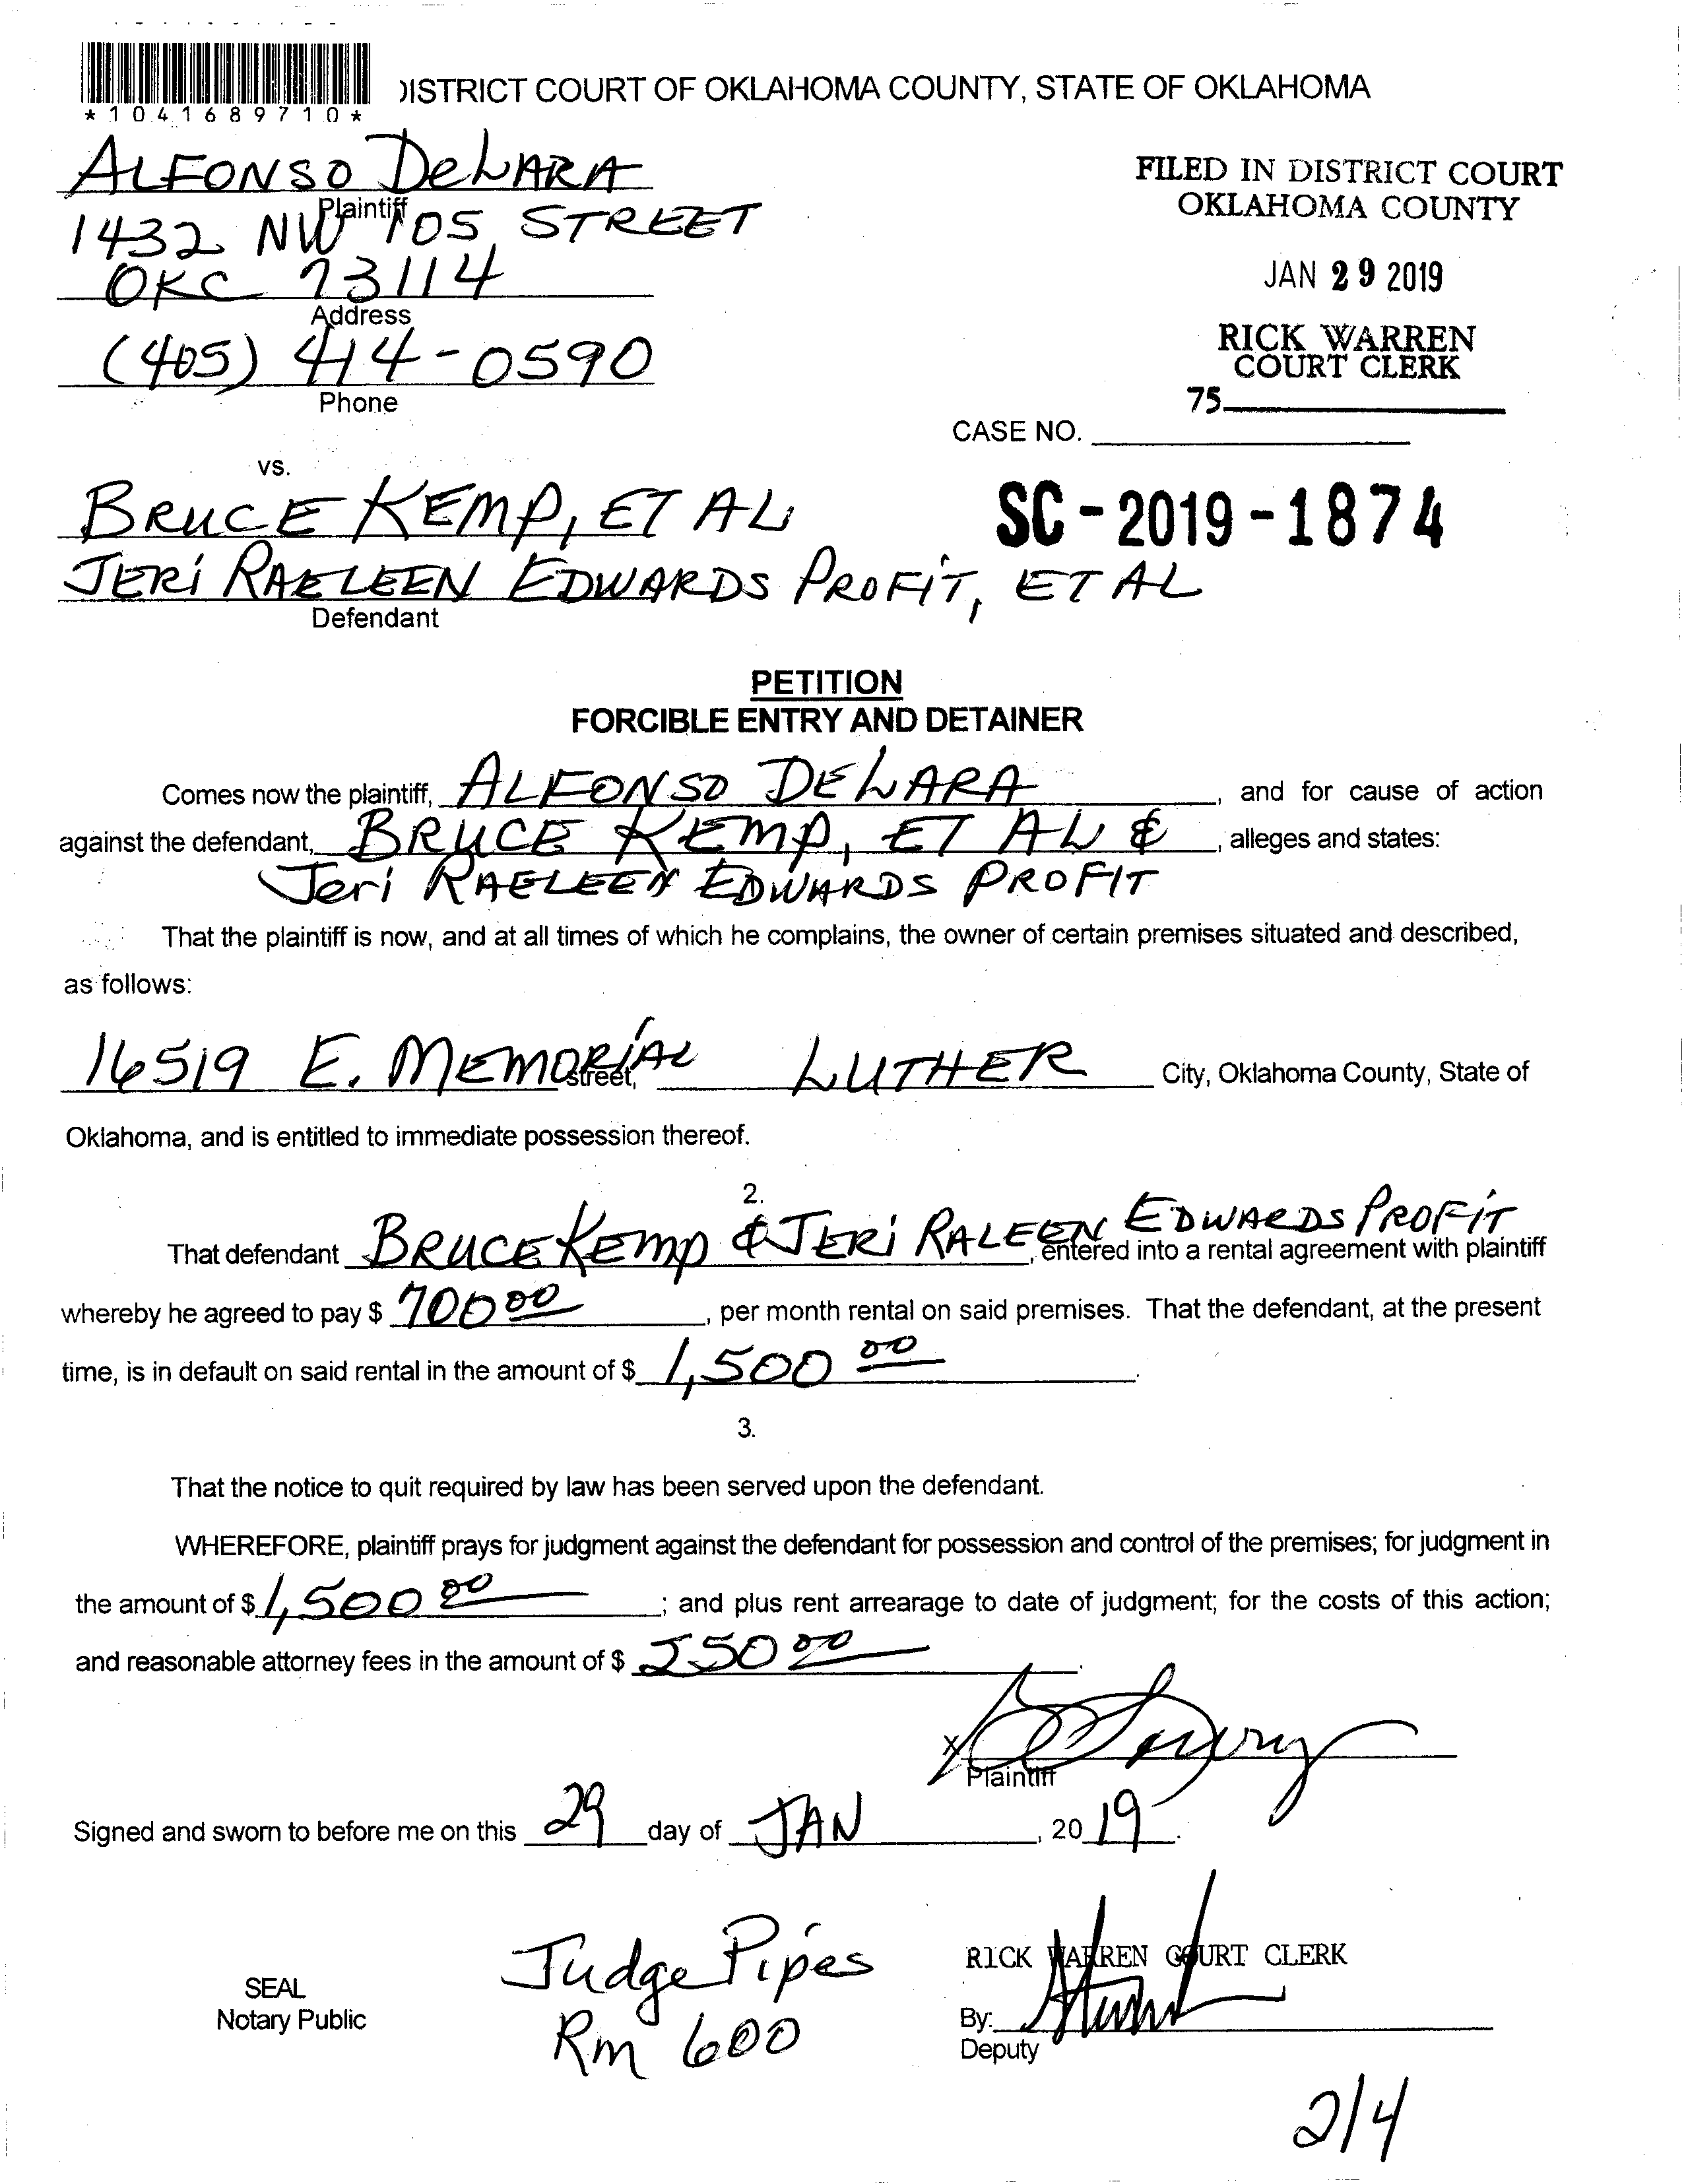 *1041689710*
DISTRICT COURT OF OKLAHOMA COUNTY, STATE OF OKLAHOMA
ALFONSO DeLARA
Plaintiff
1432 NW 105 STREET
OKC 73114
Address
(405) 414-0590
Phone
FILED IN DISTRICT COURT
OKLAHOMA COUNTY
JAN 29 2019
RICK WARREN
COURT CLERK
75
CASE NO.
SC-2019-1874
vs.
BRUCE KEMP, ET AL
JERI RAELEEN EDWARDS PROFIT, ET AL
Defendant
PETITION
FORCIBLE ENTRY AND DETAINER
Comes now the plaintiff, ALFONSO DELARA, and for cause of action
against the defendant, BRUCE KEMP, ET AL &, alleges and states:
Jeri RAELEEN EDWARDS PROFIT
That the plaintiff is now, and at all times of which he complains, the owner of certain premises situated and described,
as follows:
16519 E. MEMORIAL street, LUTHER City, Oklahoma County, State of
Oklahoma, and is entitled to immediate possession thereof.
2.
That defendant BRUCE KEMP & JERI RALEEN EDWARDS PROFIT, entered into a rental agreement with plaintiff
whereby he agreed to pay $ 700 00, per month rental on said premises. That the defendant, at the present
time, is in default on said rental in the amount of $ 1,500 00.
3.
That the notice to quit required by law has been served upon the defendant.
WHEREFORE, plaintiff prays for judgment against the defendant for possession and control of the premises; for judgment in
the amount of $ 1,500 00; and plus rent arrearage to date of judgment; for the costs of this action;
and reasonable attorney fees in the amount of $ 250 00.
X
Plaintiff
Signed and sworn to before me on this 29 day of JAN, 2019.
SEAL
Notary Public
Judge Pipes
Rm 600
RICK WARREN COURT CLERK
By:
Deputy
2/4